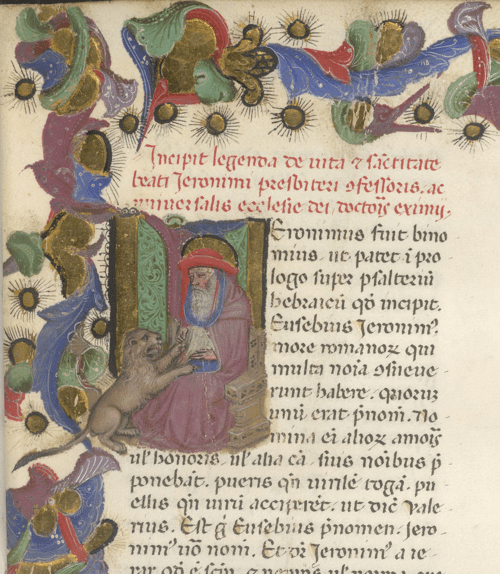 Incipit legenda de uita ⁊ sc̄titate
beati Jeronimi presbiteri ꝯfessoris. ac
uniuersalis ecclesie dei doctoris eximij.
Eronimus fuit bino
mius. ut patet ī pro
logo super psalteriū
hebraicū qd̄ incipit.
Eusebius Jeronim᾿
more romanoꝝ qui
multa noīa ꝯsueue
runt habere. quoruꝫ
unū erat p̄nom̄. No
mina eī alioꝝ amoris
ul᾿ honoris. ul᾿ alia cā suis noībus p̄
ponebāt. pueris qn̄ uirilē togā. pu
ellis qn̄ uirū acciperēt. ut dic̄ Vale
rius. Est g̊ Eusebius p̄nomen. Jero
nim᾿ uō nom̄. Et dr̄ Jeronim᾿ a ie